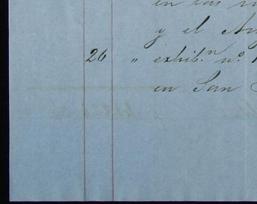 en las
y el
26 " exhib.n n.o 1
en San